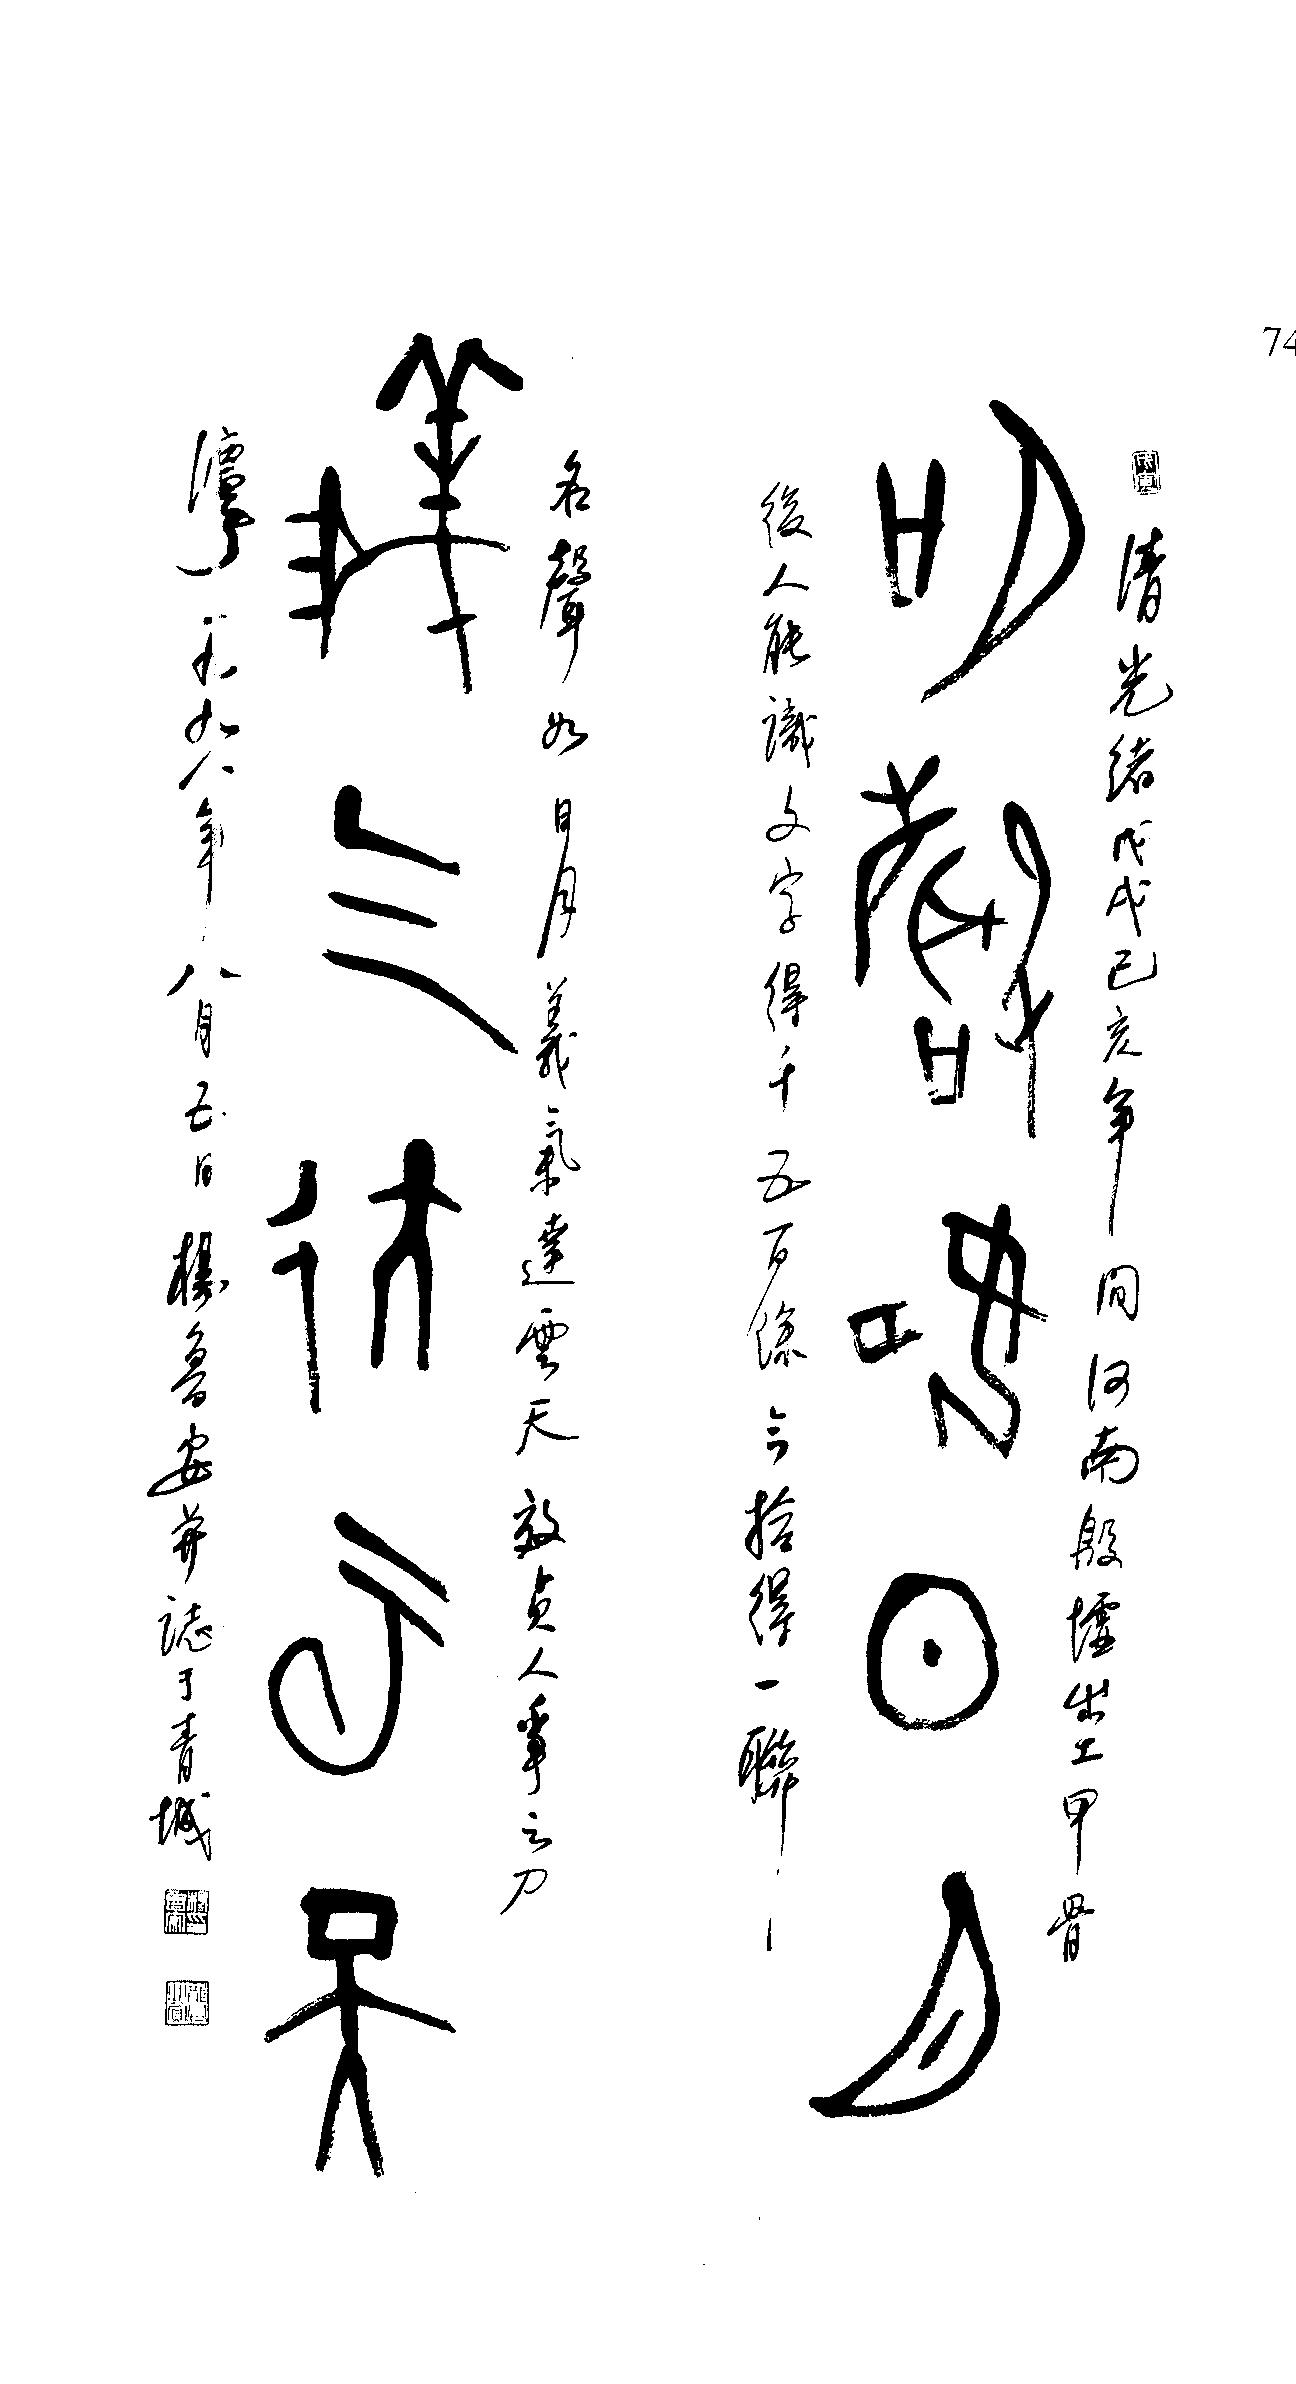 74
清光緒戊戌己亥年間河南殷墟出土甲骨
名聲如日月
後人能識文字得千五百餘今拾得一聯
名聲如日月義氣達雲天效貞人爭之刀
義气达云天
一九九八年八月五日楊魯安并誌于青城